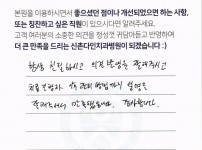 본원을 이용하시면서 좋으셨던 점이나 개선되었으면 하는 사항,
또는 칭찬하고 싶은 직원이 있으시다면 알려주세요.
고객 여러분의 소중한 의견을 정성껏 귀담아듣고 반영하여
더 큰 만족을 드리는 신촌다인치과병원이 되겠습니다 :)
항상 친절하시고 의견 반영을 잘해주시고
치료 방법과 방법까지 설명을
잘해주셔서 만족합니다. 감사합니다.